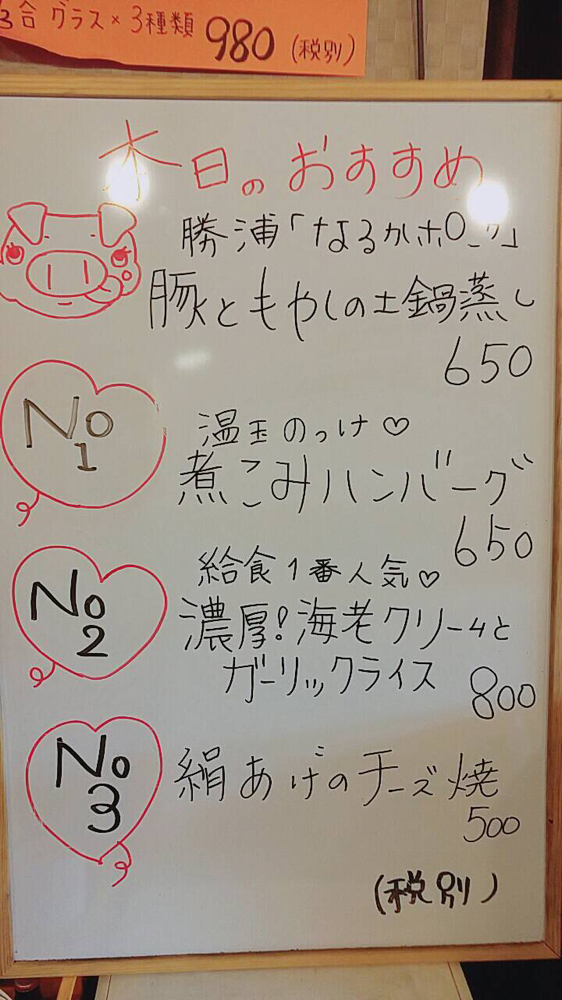 3合 グラス×3種類 980 (税別)
本日のおすすめ
勝浦「なるかポーク」
豚ともやしの土鍋蒸し
650
No 1
温玉のっけ♡
煮こみハンバーグ
650
No 2
給食1番人気♡
濃厚!海老クリームと
ガーリックライス
800
No 3
絹あげのチーズ焼
500
(税別)